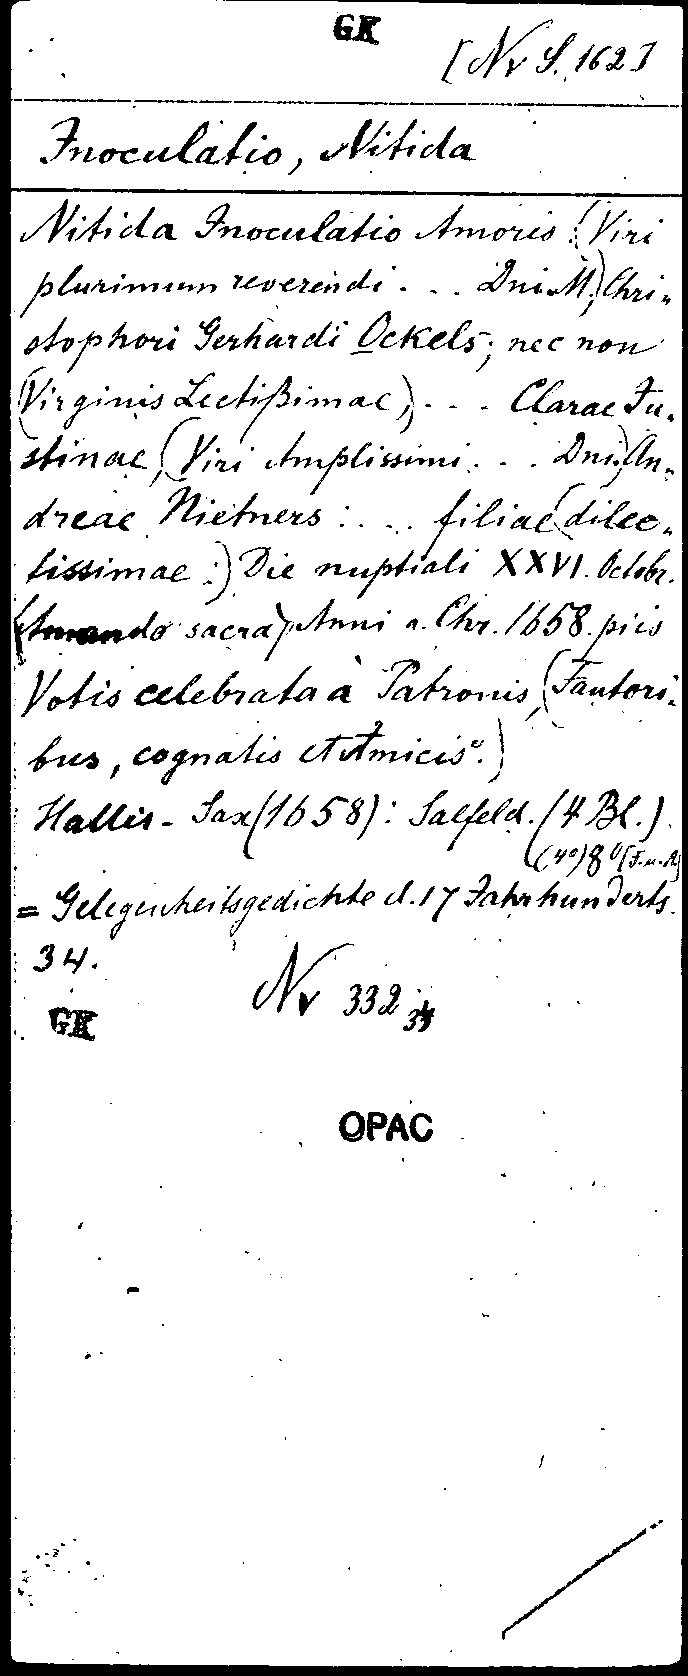 GK
[Nv S. 162]
Inoculatio, Nitida
Nitida Inoculatio Amoris : (Viri
plurimum reverendi . . . Dni M.) Chri-
stophori Gerhardi Ockels; nec non
(Virginis Lectißimae,) . . . Clarae Ju-
stinae, (Viri Amplissimi . . . Dni,) An-
dreae Nietners : . . . filiae (dilec-
tissimae :) Die nuptiali XXVI. Octobr.
(Amando sacra) Anni a. Chr. 1658. piis
Votis celebrata à Patronis, (Fautori-
bus, cognatis et Amicis.)
Hallis-Sax (1658): Salfeld. (4 Bl.)
(4°) 8° [F.u.A]
= Gelegenheitsgedichte d. 17 Jahrhunderts.
34.
Nv 332 34
GK
OPAC